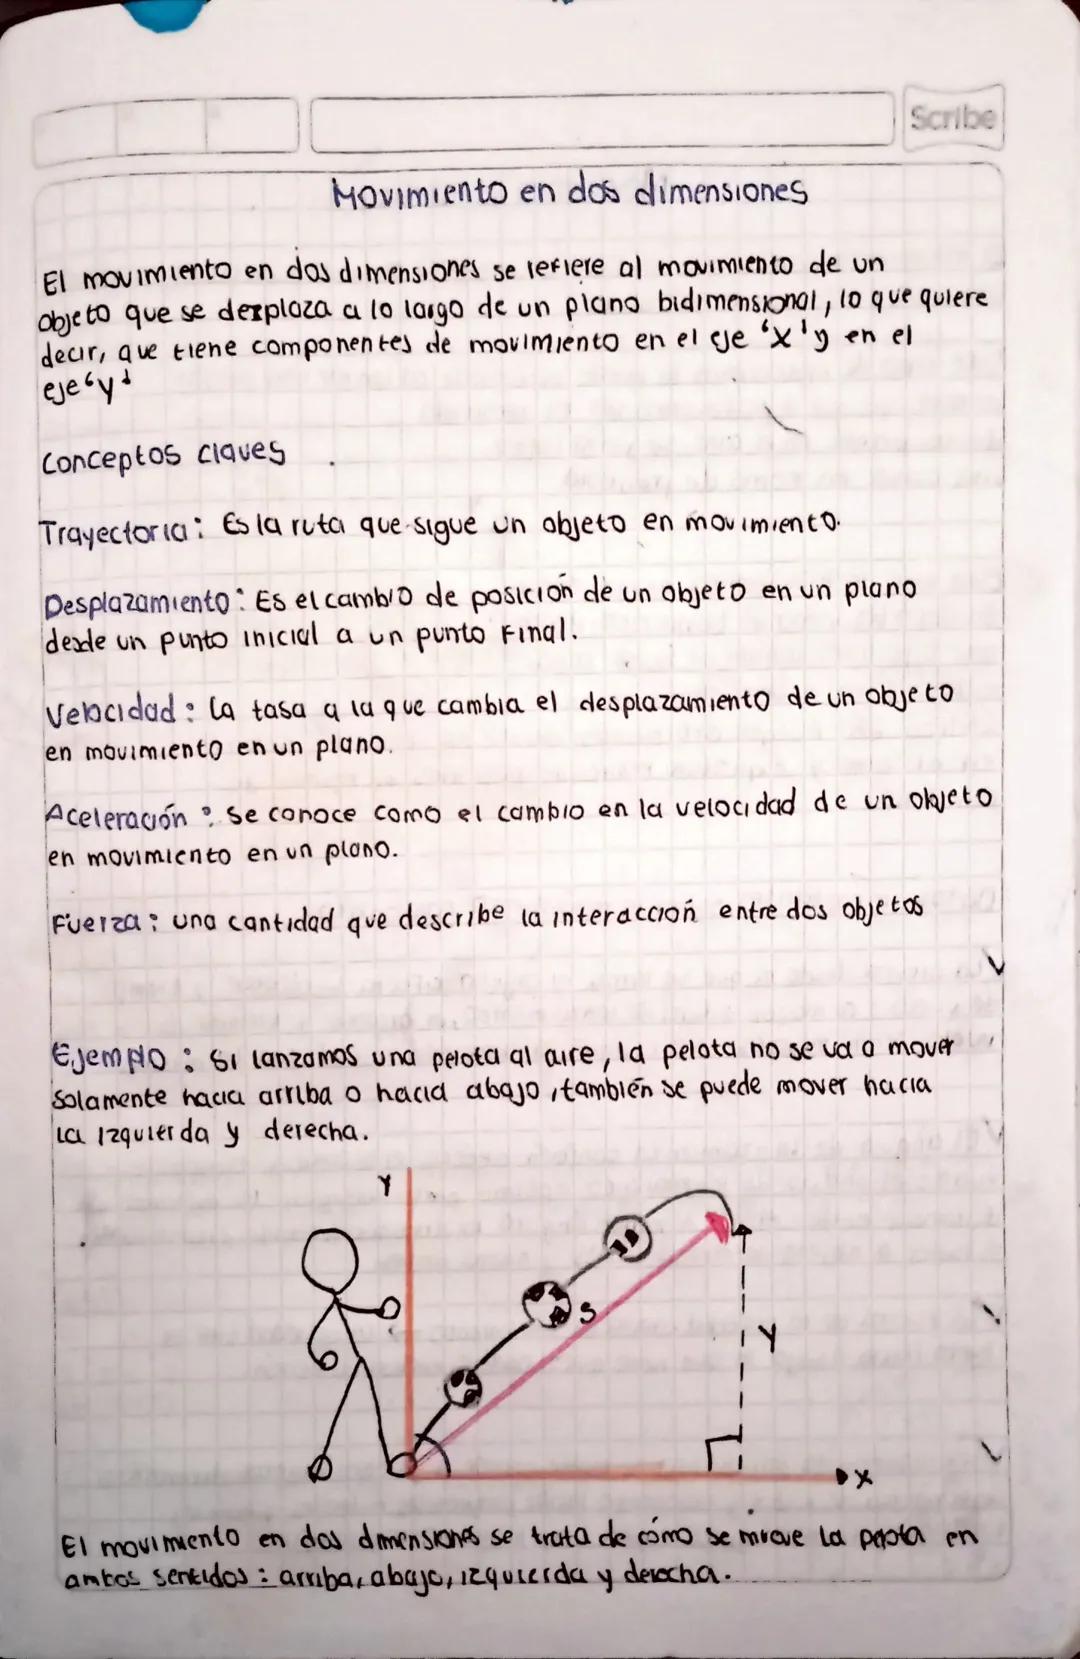 Scribe
Movimiento en dos dimensiones
El movimiento en dos dimensiones se refiere al movimiento de un
objeto que se desplaza a lo largo de un plano bidimensional, lo que quiere
decir, que tiene componentes de movimiento en el eje 'x' y en el
eje 'y'
Conceptos claves
Trayectoria: Es la ruta que sigue un objeto en movimiento.
Desplazamiento: Es el cambio de posición de un objeto en un plano
desde un punto inicial a un punto Final.
Velocidad: la tasa a la que cambia el desplazamiento de un objeto
en movimiento en un plano.
Aceleración: Se conoce como el cambio en la velocidad de un objeto
en movimiento en un plano.
Fuerza: una cantidad que describe la interacción entre dos objetos
Ejemplo: Si lanzamos una pelota al aire, la pelota no se va a mover
solamente hacia arriba o hacia abajo, también se puede mover hacia
la izquierda y derecha.
Y
S
Y
X
El movimiento en dos dimensiones se trata de cómo se mueve la pelota en
ambos sentidos: arriba, abajo, izquierda y derecha.